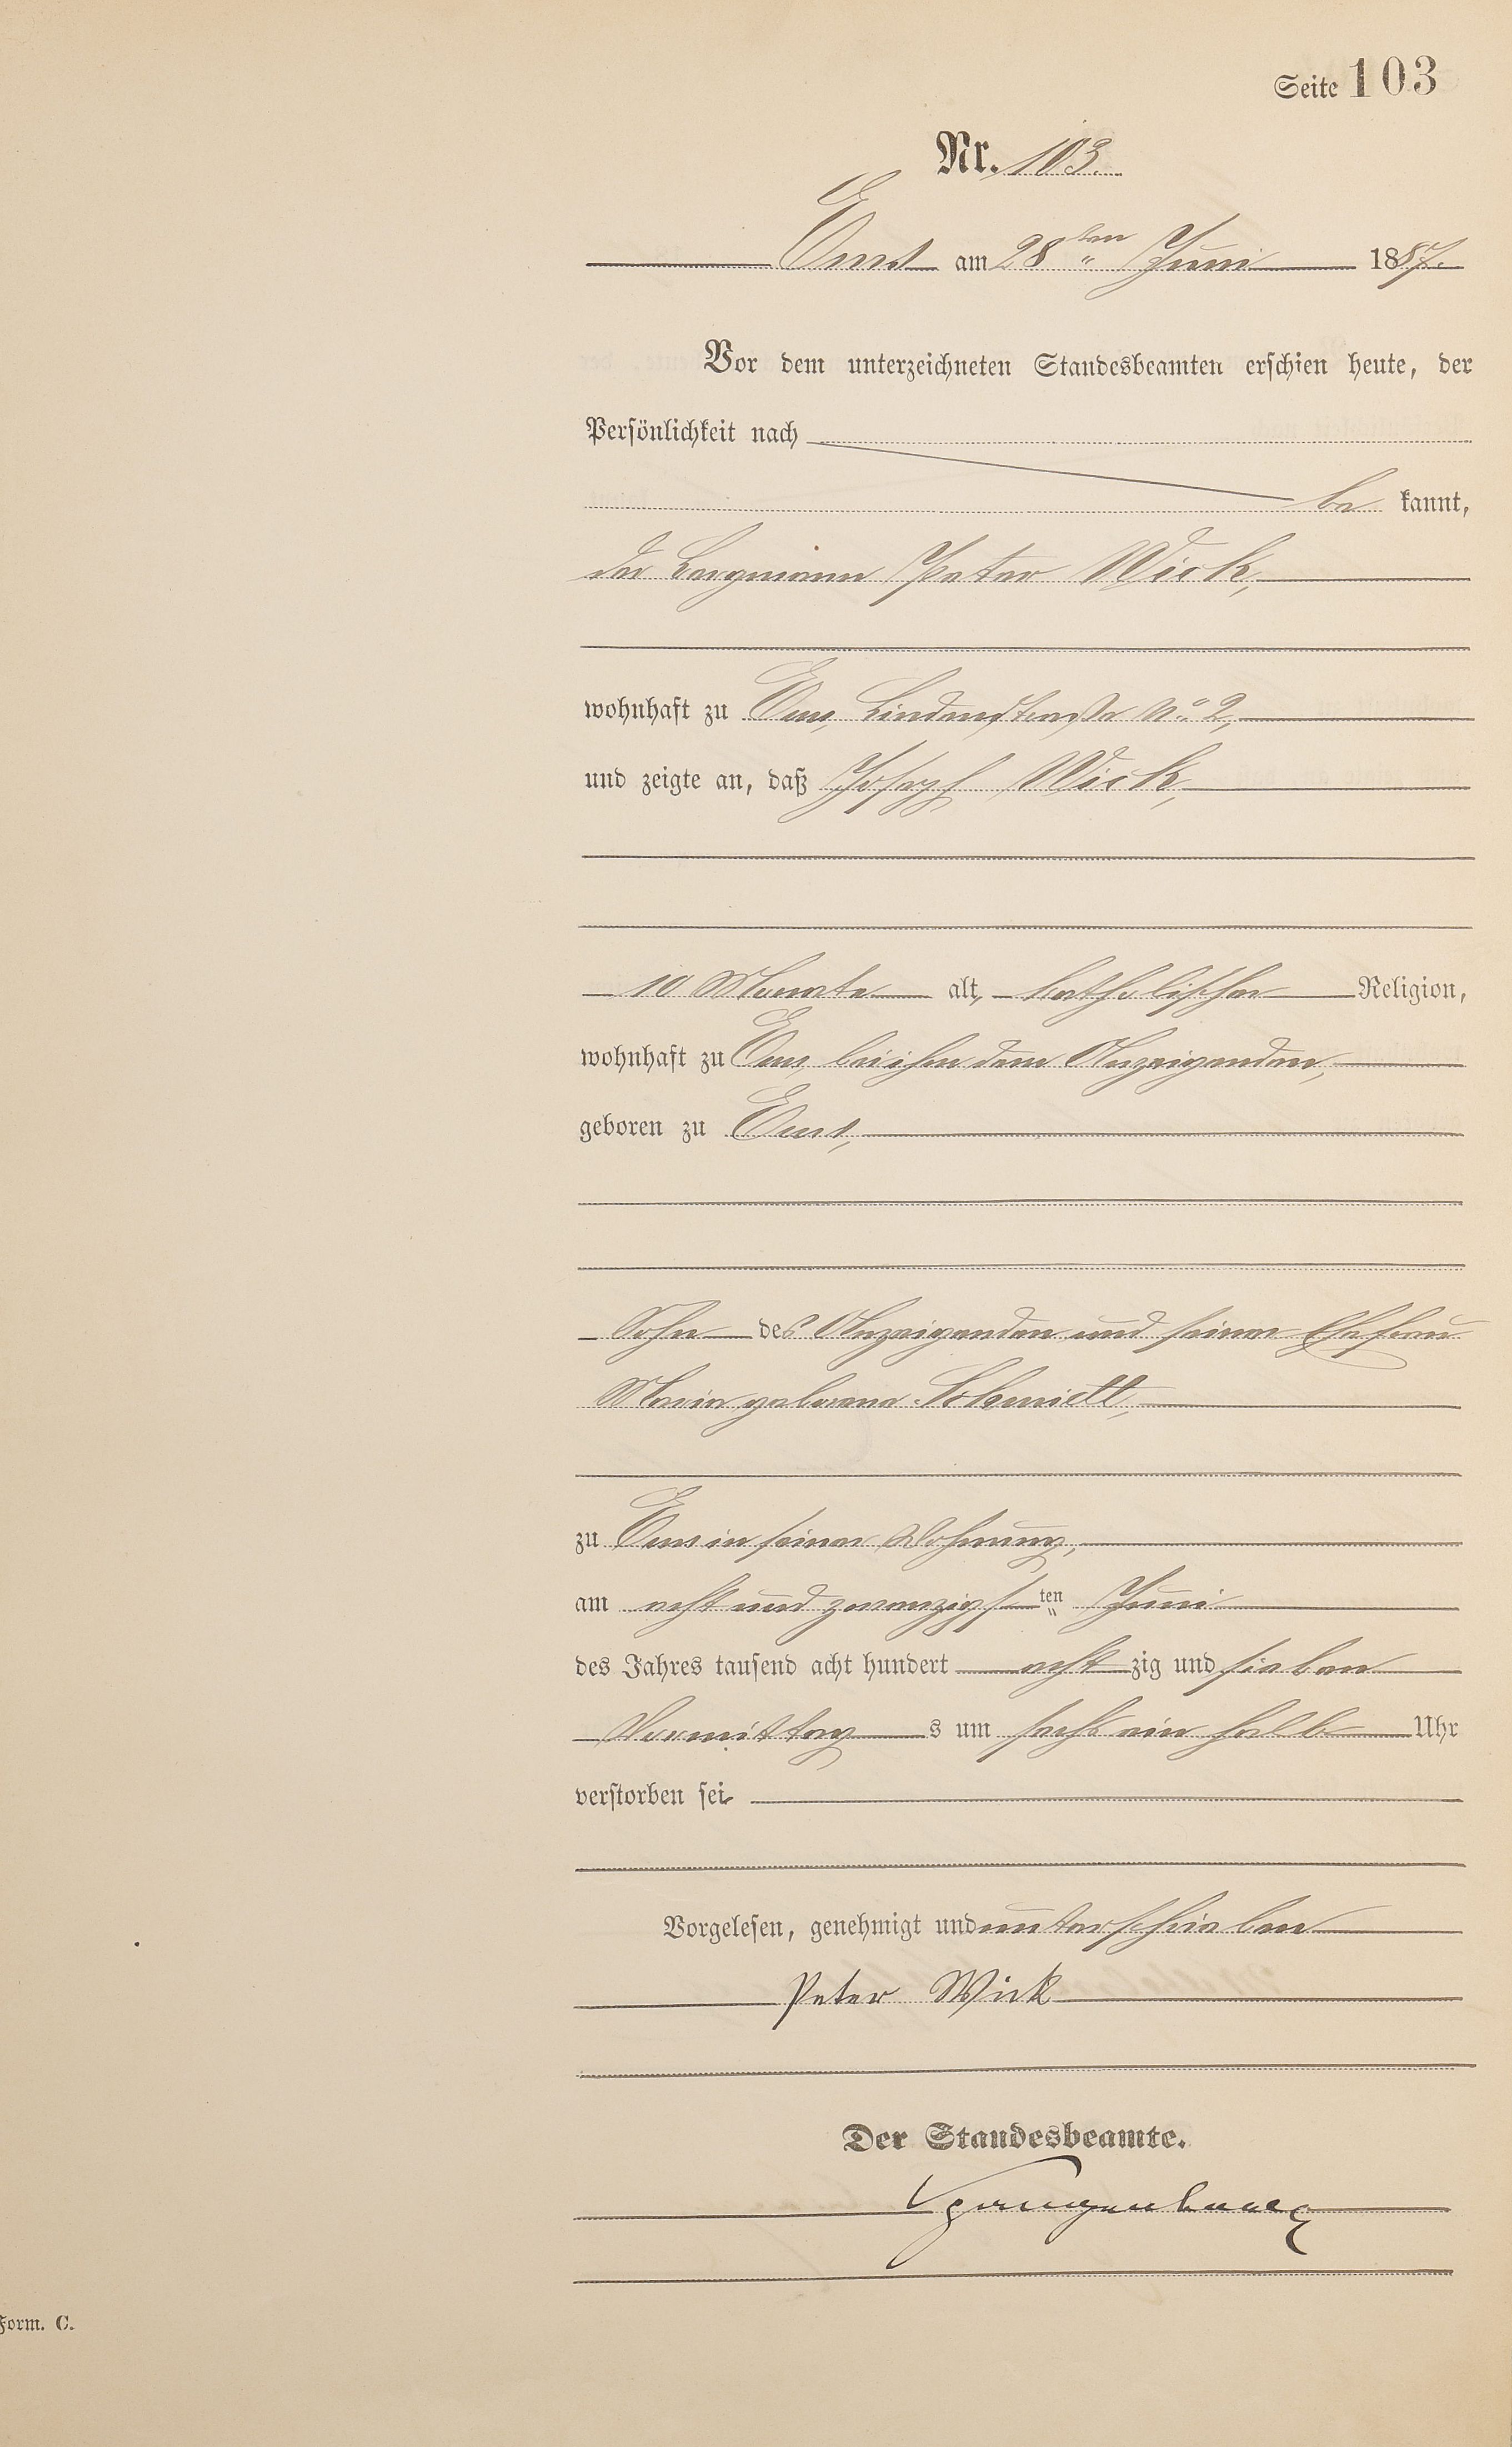 Seite 103
Nr. 103.
Ems am 28ten Juni 1887.
Vor dem unterzeichneten Standesbeamten erschien heute, der
Persönlichkeit nach
be kannt,
der Bergmann Peter Wick,
wohnhaft zu Ems, Lindenstraße No. 2,
und zeigte an, daß Joseph Wick,
10 Monate alt, katholischer Religion,
wohnhaft zu Ems, bei ihm dem Anzeigenden,
geboren zu Ems,
Sohn des Anzeigenden und seiner Ehefrau
Maria geborene Schmidt,
zu Ems in seiner Wohnung,
am acht und zwanzigsten Juni
des Jahres tausend acht hundert acht zig und sieben
Vormittag s um sechs ein halb Uhr
verstorben sei
Vorgelesen, genehmigt und unterschrieben
Peter Wick
Der Standesbeamte.
Form. C.